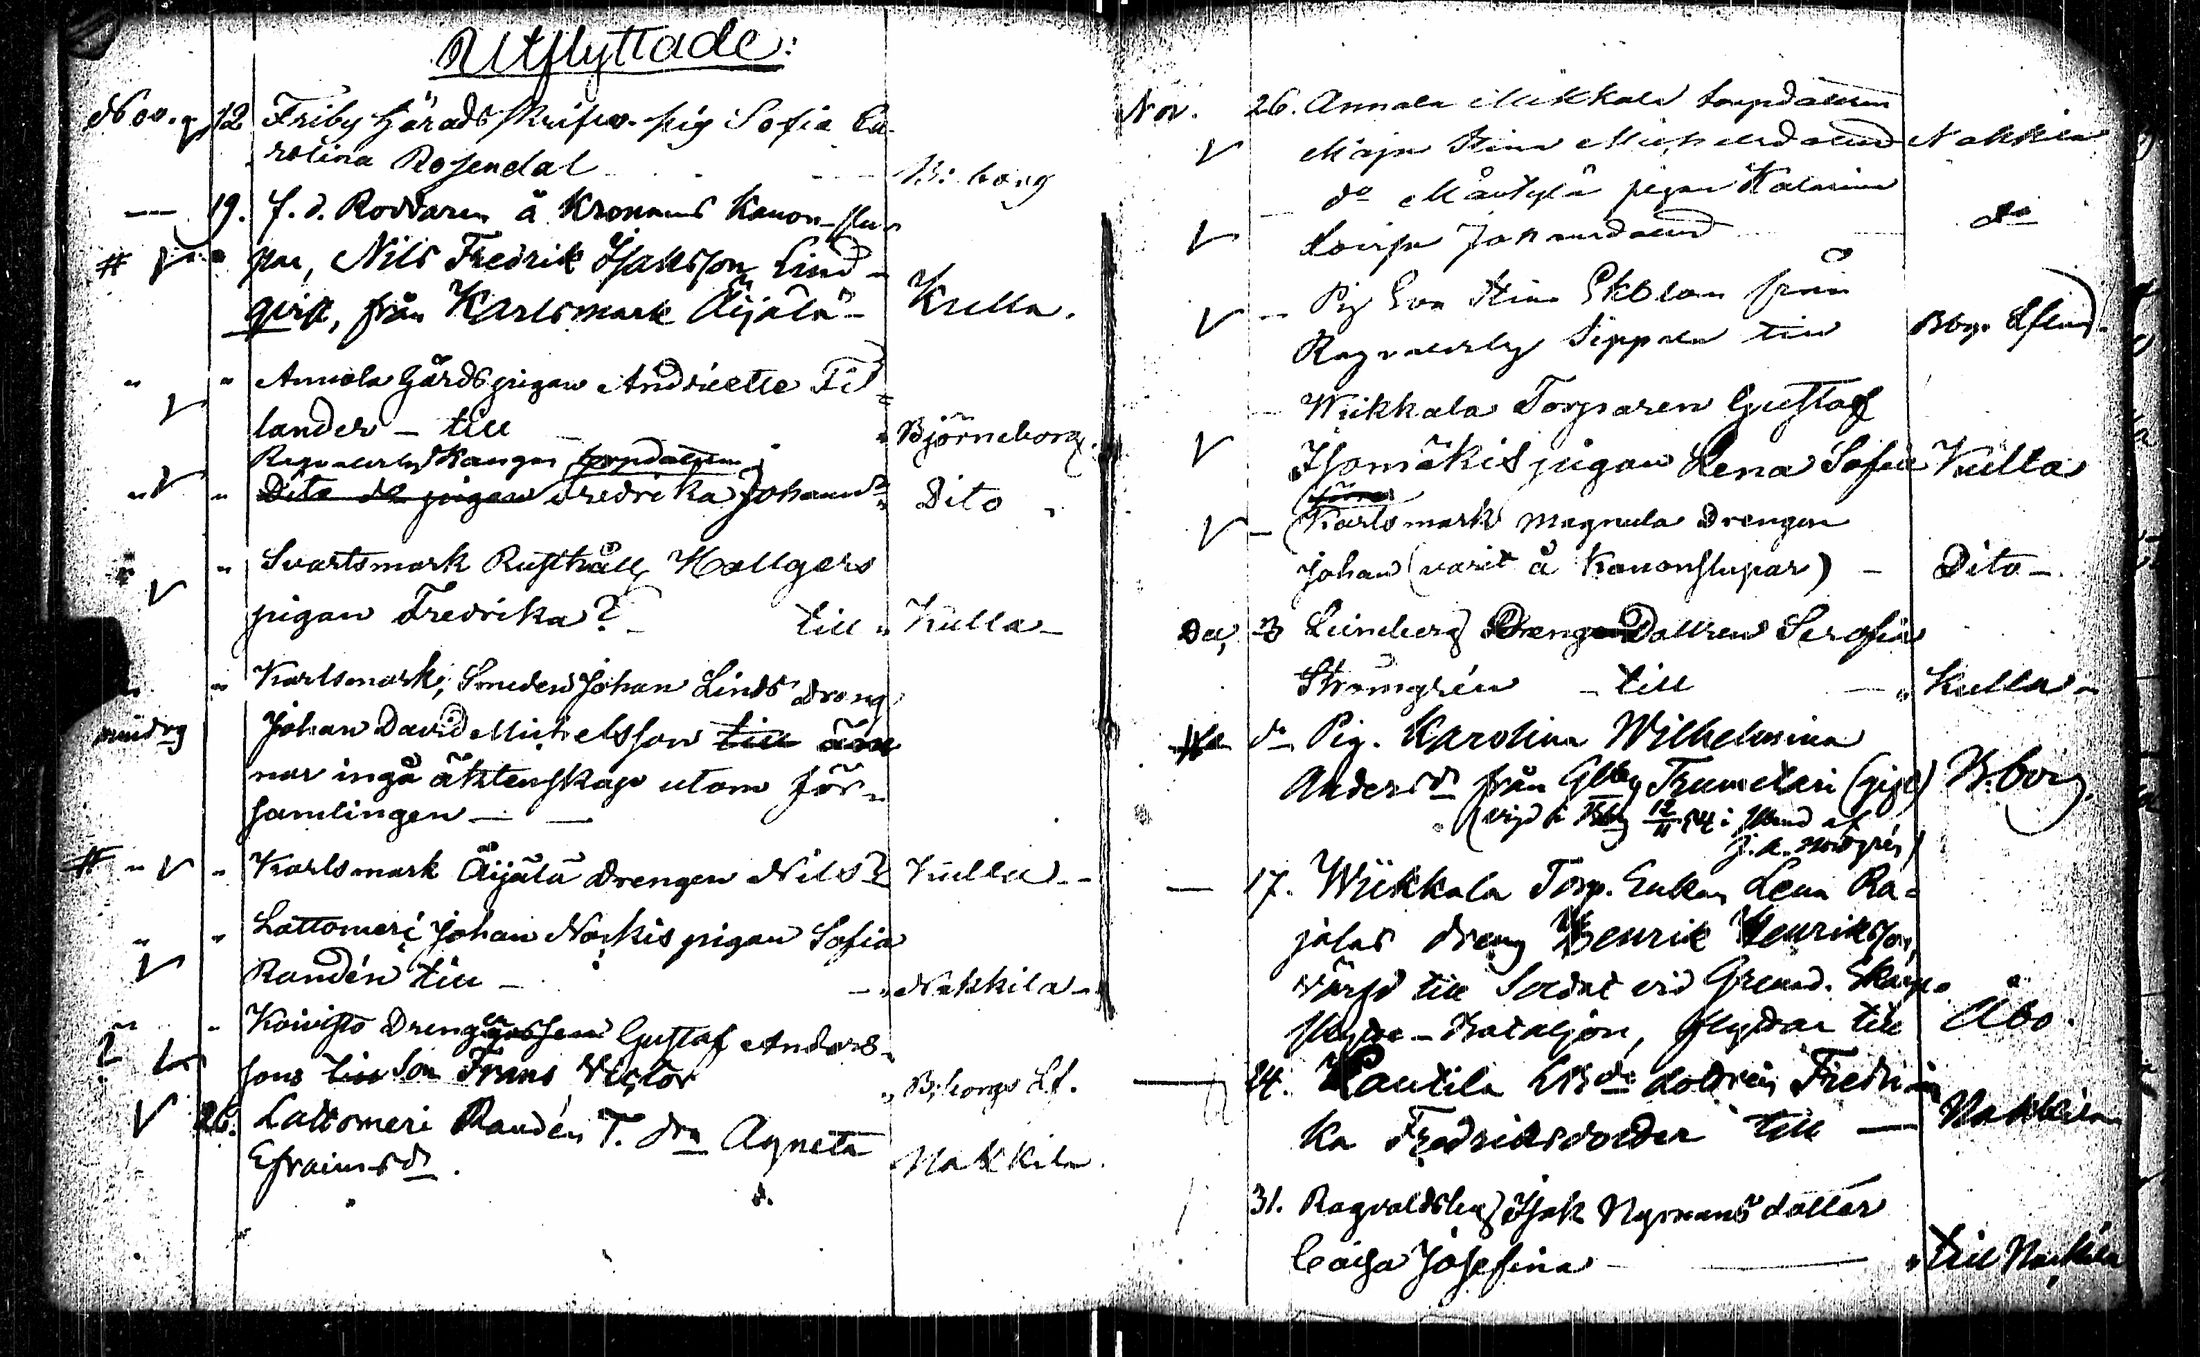 Utflyttade:
Nov. 12 Friby Härads skrifv. pig Sofia Ca-
rolina Rosendal - - - B:borg
— 19. f. d. Roddaren å Kronans Kanon-slu-
par, Nils Fredrik Isaksson Lind-
qvist, från Karlsmark Äijälä - Kulla.
" " Annola Gårds pigan Andriette Fi-
lander - till " Björneborg.
Ragvaldsby Kangas torpdottren
" " Dito do pigan Fredrika Johansd: Dito
" " Svartsmark Rusthåll Hallgers
pigan Fredrika? - till " Kulla -
" " Karlsmark, Smeden Johan Linds dräng
Johan David Michelsson till äm
nar ingå äktenskap utom för-
samlingen - -
# " " Karlsmark Äijälä Drengen Nils? Kulla -
" " Lattomeri Johan Norkis pigan Sofia
Randén till - - " Nakkila -
" " Koivisto Drengen gossen Gustaf Anders-
sons till Son Frans Victor " B:borgs Lf.
26. Lattomeri Randén T. drn Agneta
Efraimsdr. Nakkila.
Nov. 26. Annala Mikkola torpdottren
Maja Stina Michelsdotter Nakkila
— do Mäntylä pigan Katarina
Lovisa Johansdotter do
— Pig Eva Stina Ekblom från
Ragvaldsby Sippola till Bbgs Lfs.
— Wiikkala Torparen Gustaf
Isomäkis pigan Lena Sofia Kulla
— Karlsmark Magnula Drengen
Johan (varit å Kanonslupar) - Dito -
Dec, 3 Leineberg Drengen Dottren Serafia
Strömgrén - till - " Kulla -
do Pig. Karolina Wilhelmina
Andersdr från Glby Trumetari (gift) B:borg.
(vigd i Bbg 12/11 54 i Stad af
J. A. Nordgrén)
— 17. Wiikkala Torp. Enkan Lena Ra-
jalas dreng Henrik Henriksson,
värfd till Soldat vid Grenad. Skarp-
skytte-Bataljon, flyttar till Åbo.
— 24. Lautila dottren Fredri-
ka Fredriksdotter till — Nakkila
31. Ragvaldsby Isak Nymans dotter
Caisa Josefina - — " till Nakkila